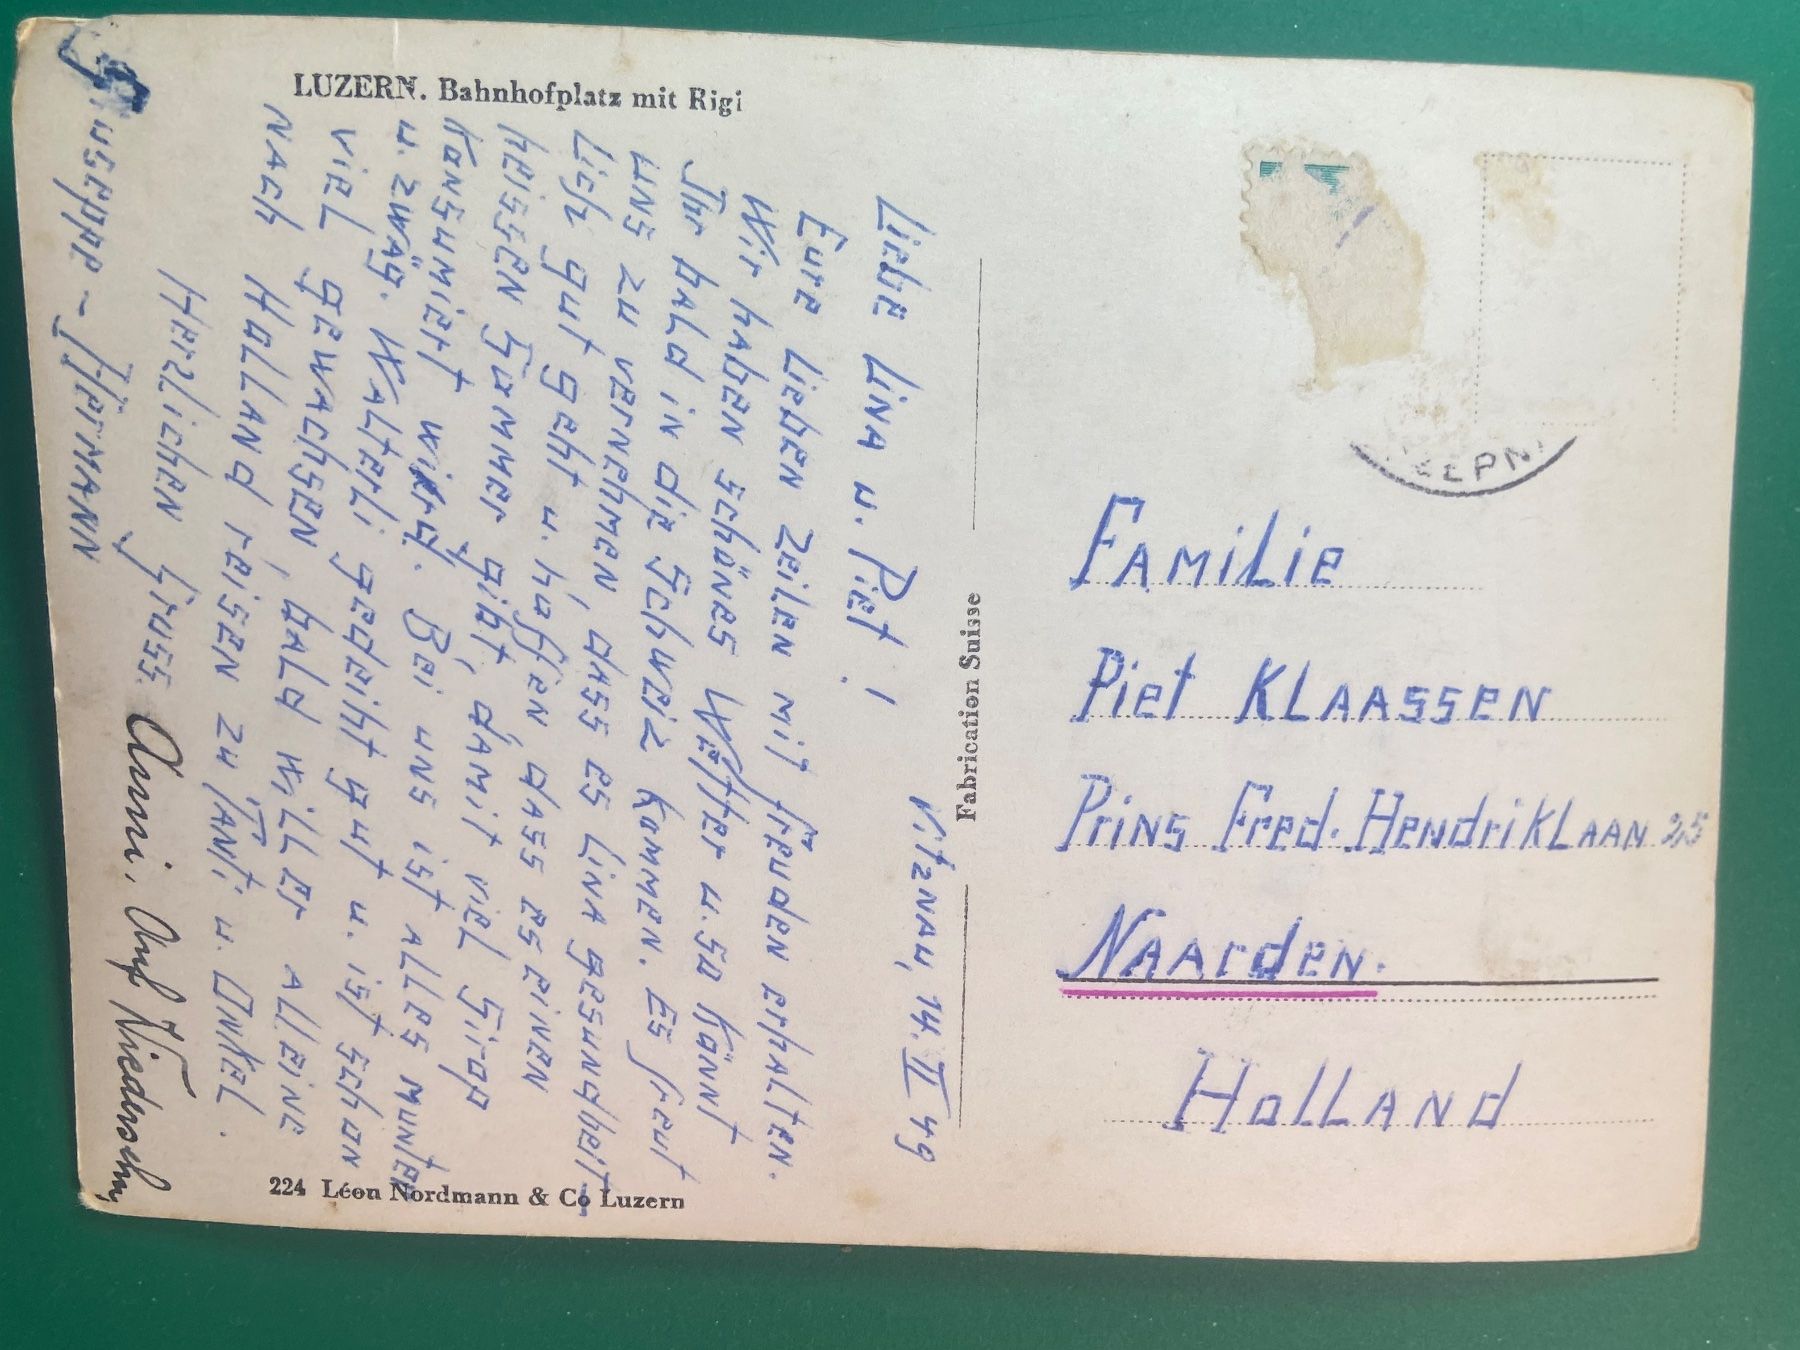 LUZERN. Bahnhofplatz mit Rigi
Vitznau, 14. II 49
Liebe Lina u. Piet!
Eure lieben Zeilen mit freuden erhalten.
Wir haben schönes Wetter u. so könnt
Ihr bald in die Schweiz kommen. Es freut
uns zu vernehmen, dass es Lina gesundheit-
lich gut geht u. hoffen, dass es einen
heissen Sommer gibt, damit viel Sirop
konsumiert wird. Bei uns ist alles munter
u. zwäg. Walterli gedeiht gut u. ist schon
viel gewachsen, bald will er alleine
nach Holland reisen zu Tanti u. Onkel.
Herzlichen Gruss.
Giuseppe - Hermann
Anni,
224 Léon Nordmann & Co Luzern
Fabrication Suisse
Familie
Piet KLAASSEN
Prins Fred. HendriKLAAN 25
NAArden.
HolLANd